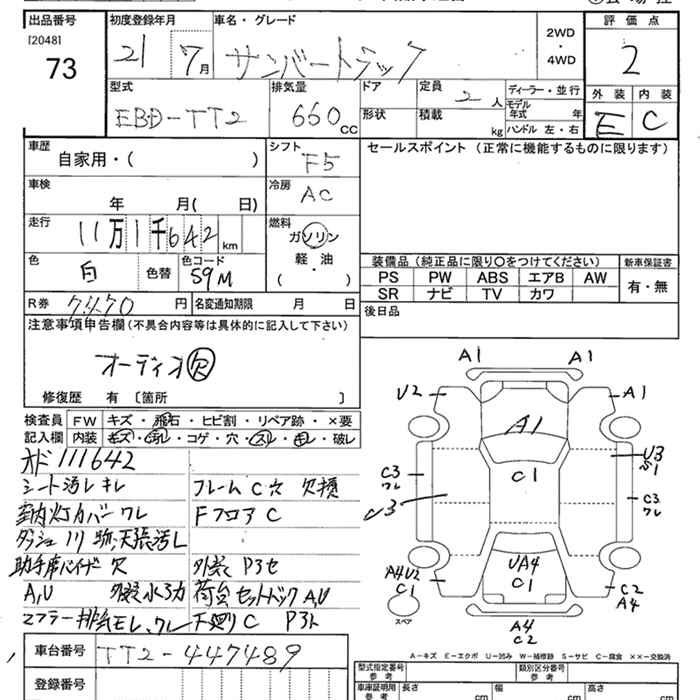 出品番号
[2048]
73
初度登録年月
21 7月
車名・グレード
サンバートラック
2WD
・
4WD
評価点
2
型式
EBD-TT2
排気量
660 cc
ドア
形状
定員
2人
積載
kg
ディーラー・並行
モデル年式 年
ハンドル 左・右
外装 内装
E C
車歴
自家用・( )
シフト
F5
セールスポイント (正常に機能するものに限ります)
車検
年 月( 日)
冷房
AC
走行
11万1千642 km
燃料
ガソリン
軽・油
( )
色
白
色替
色コード
59M
装備品 (純正品に限り〇をつけてください)
新車保証書
PS PW ABS エアB AW
SR ナビ TV カワ
有・無
R券 7,470 円
名変通知期限 月 日
後日品
注意事項申告欄 (不具合内容等は具体的に記入して下さい)
オーディオ欠
修復歴 有 [箇所 ]
検査員 FW キズ・飛石・ヒビ割・リペア跡・×要
記入欄 内装 キズ・汚レ・コゲ・穴・スレ・キレ・破レ
オド 111642
シート汚レキレ フレームC穴欠損
室内灯カバーワレ FフロアC
ダッシュ 天張汚レ
助手席バイザー欠 外装 P3セ
A,U 荷台 A,U
マフラー排気モレ、ワレ 下廻りC P3ト
車台番号 TT2-447489
登録番号
A1 A1
U2 A1
A1
C1
U3
S1
C3
ワレ
U3
C3
ワレ
A4U2
C1
UA4
C1
C2
A4
スペア
A4
C2
A-キズ E-エクボ U-凹み W-補修跡 S-サビ C-腐食 ××-交換済
型式指定番号
参考
類別区分番号
参考
車庫証明用
参考
長さ cm
幅 cm
高さ cm